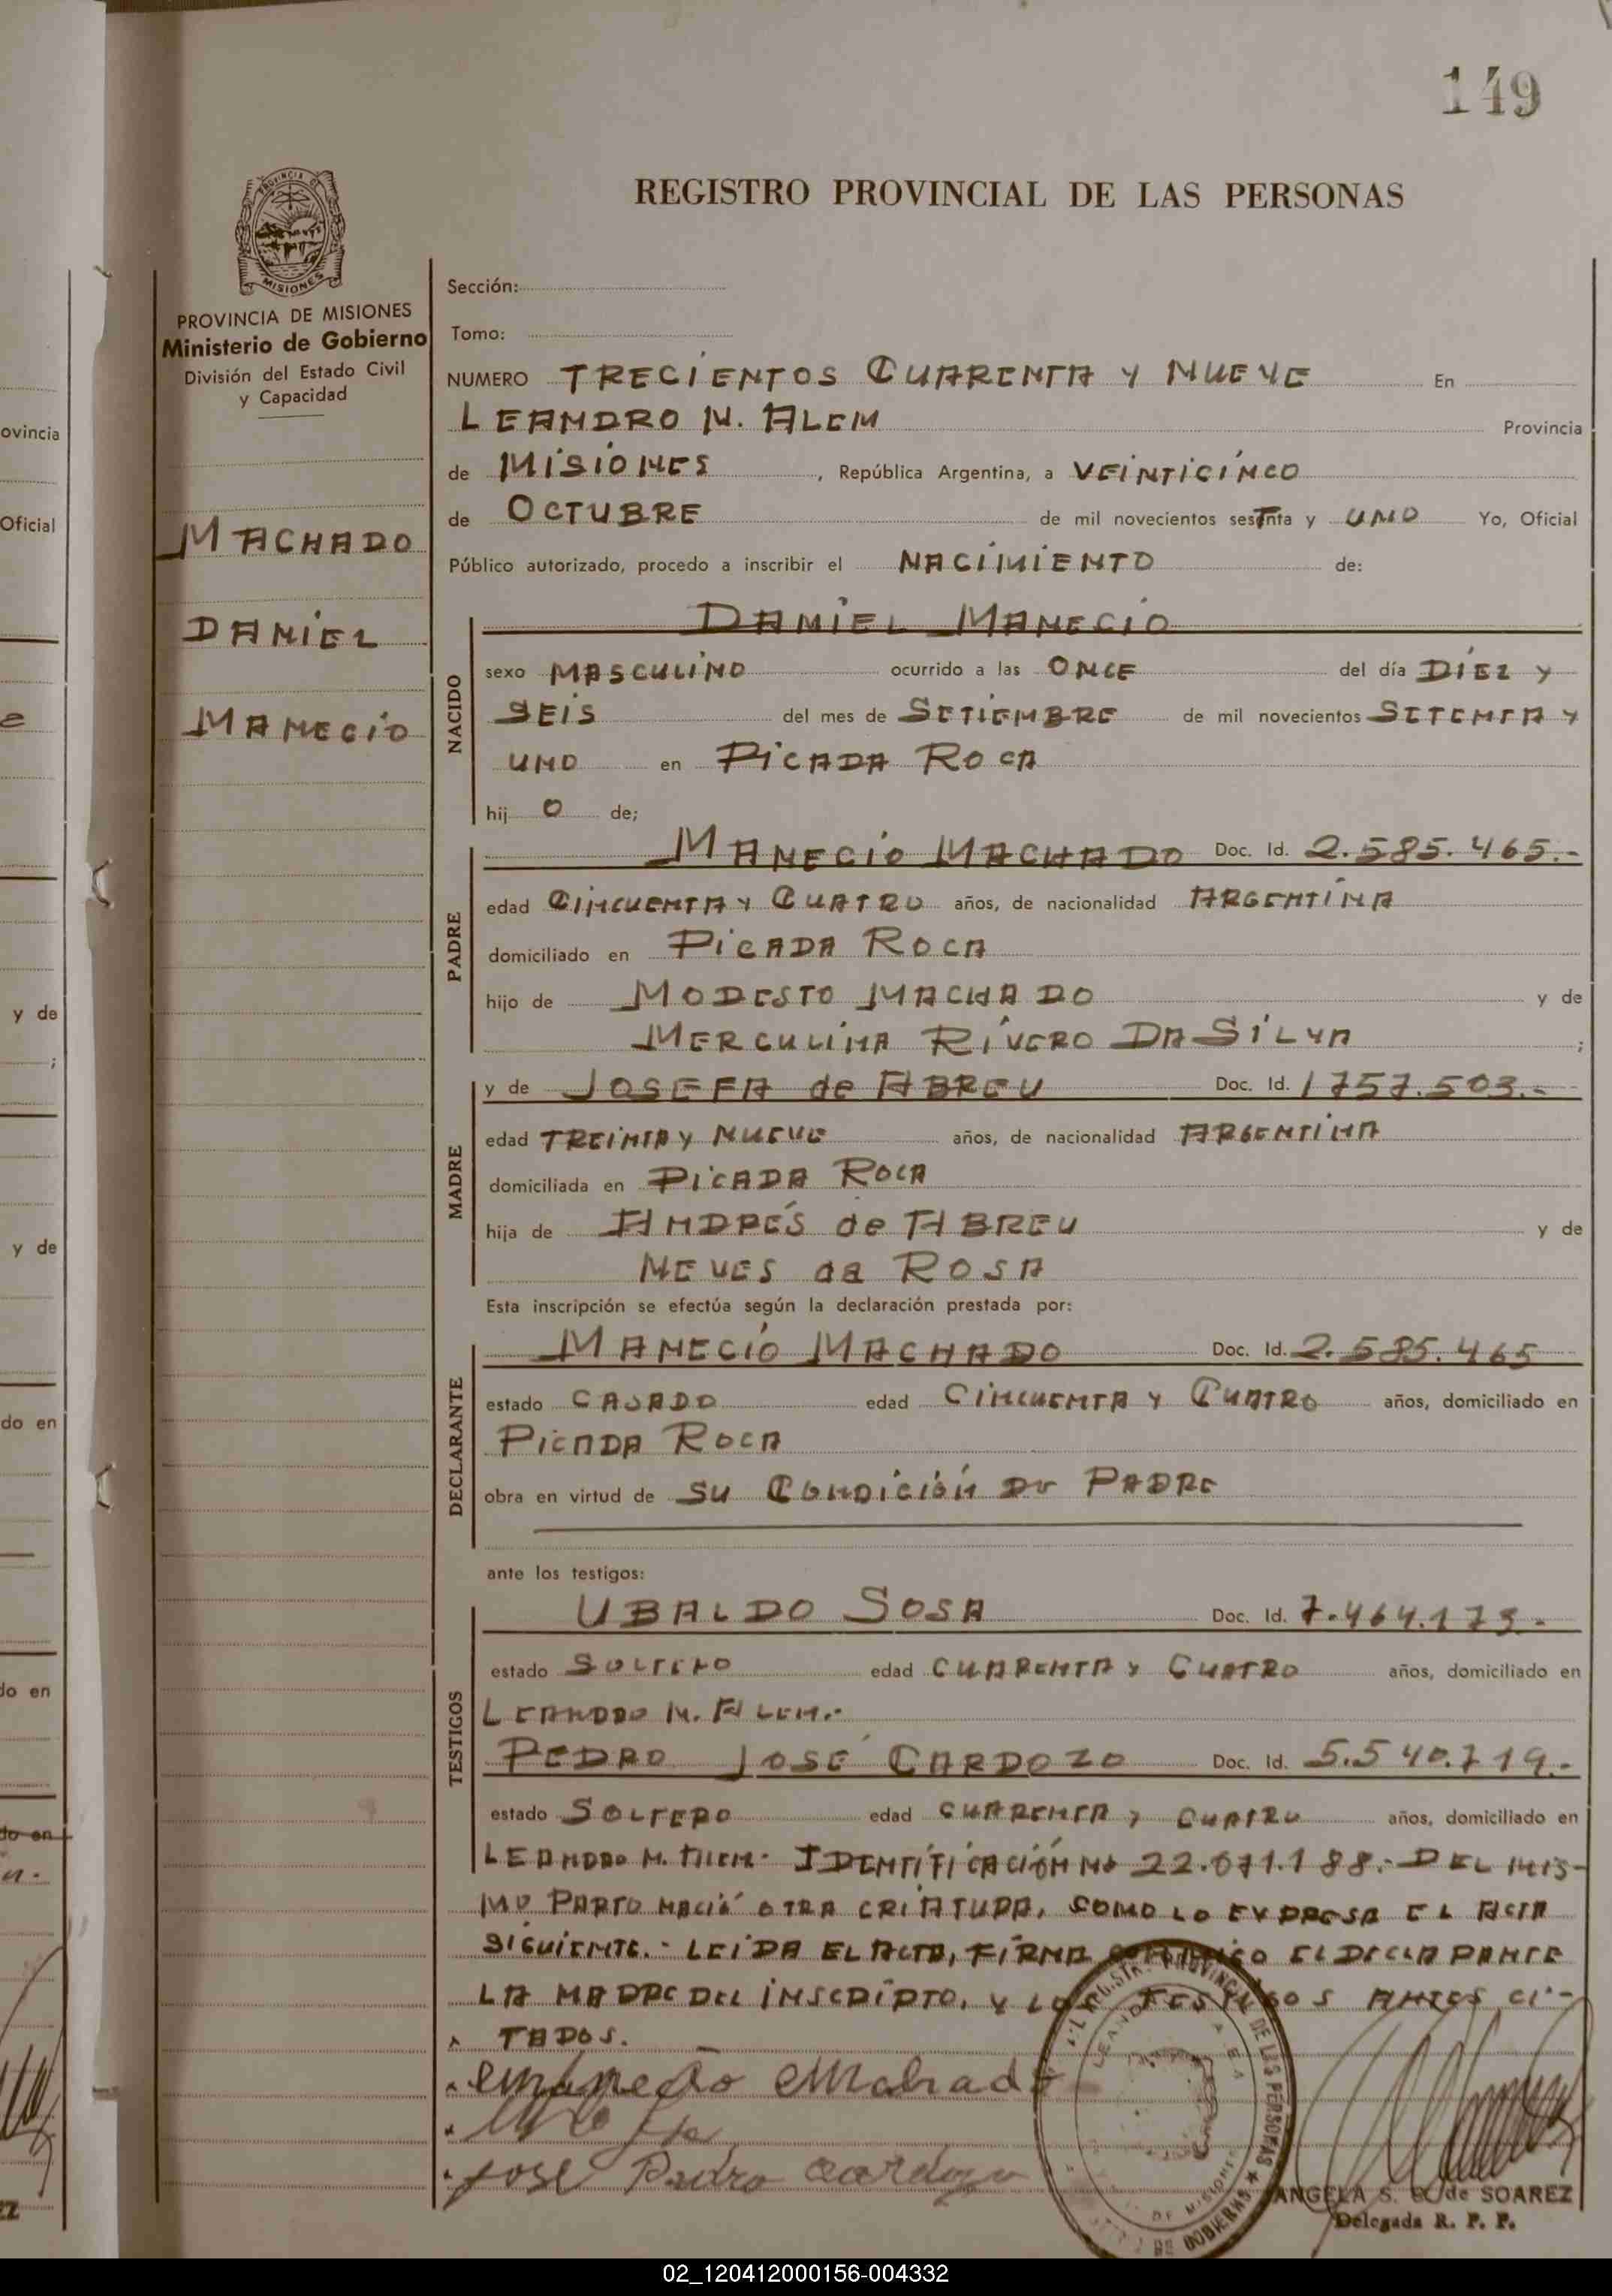 149
REGISTRO PROVINCIAL DE LAS PERSONAS
PROVINCIA DE MISIONES
Ministerio de Gobierno
División del Estado Civil
y Capacidad
MACHADO
DANIEL
MANECIO
Sección:
Tomo:
NUMERO TRECIENTOS CUARENTA Y NUEVE En
LEANDRO N. ALEM Provincia
de MISIONES, República Argentina, a VEINTICINCO
de OCTUBRE de mil novecientos sesTnta y UNO Yo, Oficial
Público autorizado, procedo a inscribir el NACIMIENTO de:
NACIDO
DANIEL MANECIO
sexo MASCULINO ocurrido a las ONCE del día DIEZ Y
SEIS del mes de SETIEMBRE de mil novecientos SETENTA Y
UNO en PICADA ROCA
hij O de;
PADRE
MANECIO MACHADO Doc. Id. 2.585.465.-
edad CINCUENTA Y CUATRO años, de nacionalidad ARGENTINA
domiciliado en PICADA ROCA
hijo de MODESTO MACHADO y de
MERCULINA RIVERO DA SILVA ;
MADRE
y de JOSEFA de ABREU Doc. Id. 1757.503.-
edad TREINTA Y NUEVE años, de nacionalidad ARGENTINA
domiciliada en PICADA ROCA
hija de ANDRÉS de ABREU y de
NEVES da ROSA
Esta inscripción se efectúa según la declaración prestada por:
DECLARANTE
MANECIO MACHADO Doc. Id. 2.585.465
estado CASADO edad CINCUENTA Y CUATRO años, domiciliado en
PICADA ROCA
obra en virtud de SU CONDICIÓN DE PADRE
ante los testigos:
TESTIGOS
UBALDO SOSA Doc. Id. 7.464.173.-
estado SOLTERO edad CUARENTA Y CUATRO años, domiciliado en
LEANDRO N. ALEM.-
PEDRO JOSÉ CARDOZO Doc. Id. 5.540.719.-
estado SOLTERO edad CUARENTA Y CUATRO años, domiciliado en
LEANDRO N. ALEM.- IDENTIFICACIÓN No 22.071.188.- DEL MIS-
MO PARTO NACIÓ OTRA CRIATURA, COMO LO EXPRESA EL ACTA
SIGUIENTE.- LEIDA EL ACTA, FIRMA CONMIGO EL DECLARANTE
LA MADRE DEL INSCRIPTO, Y LOS TESTIGOS ANTES CI-
TADOS.
José Pedro Cardozo
ANGELA S. de SOAREZ
Delegada R. P. P.
02_120412000156-004332